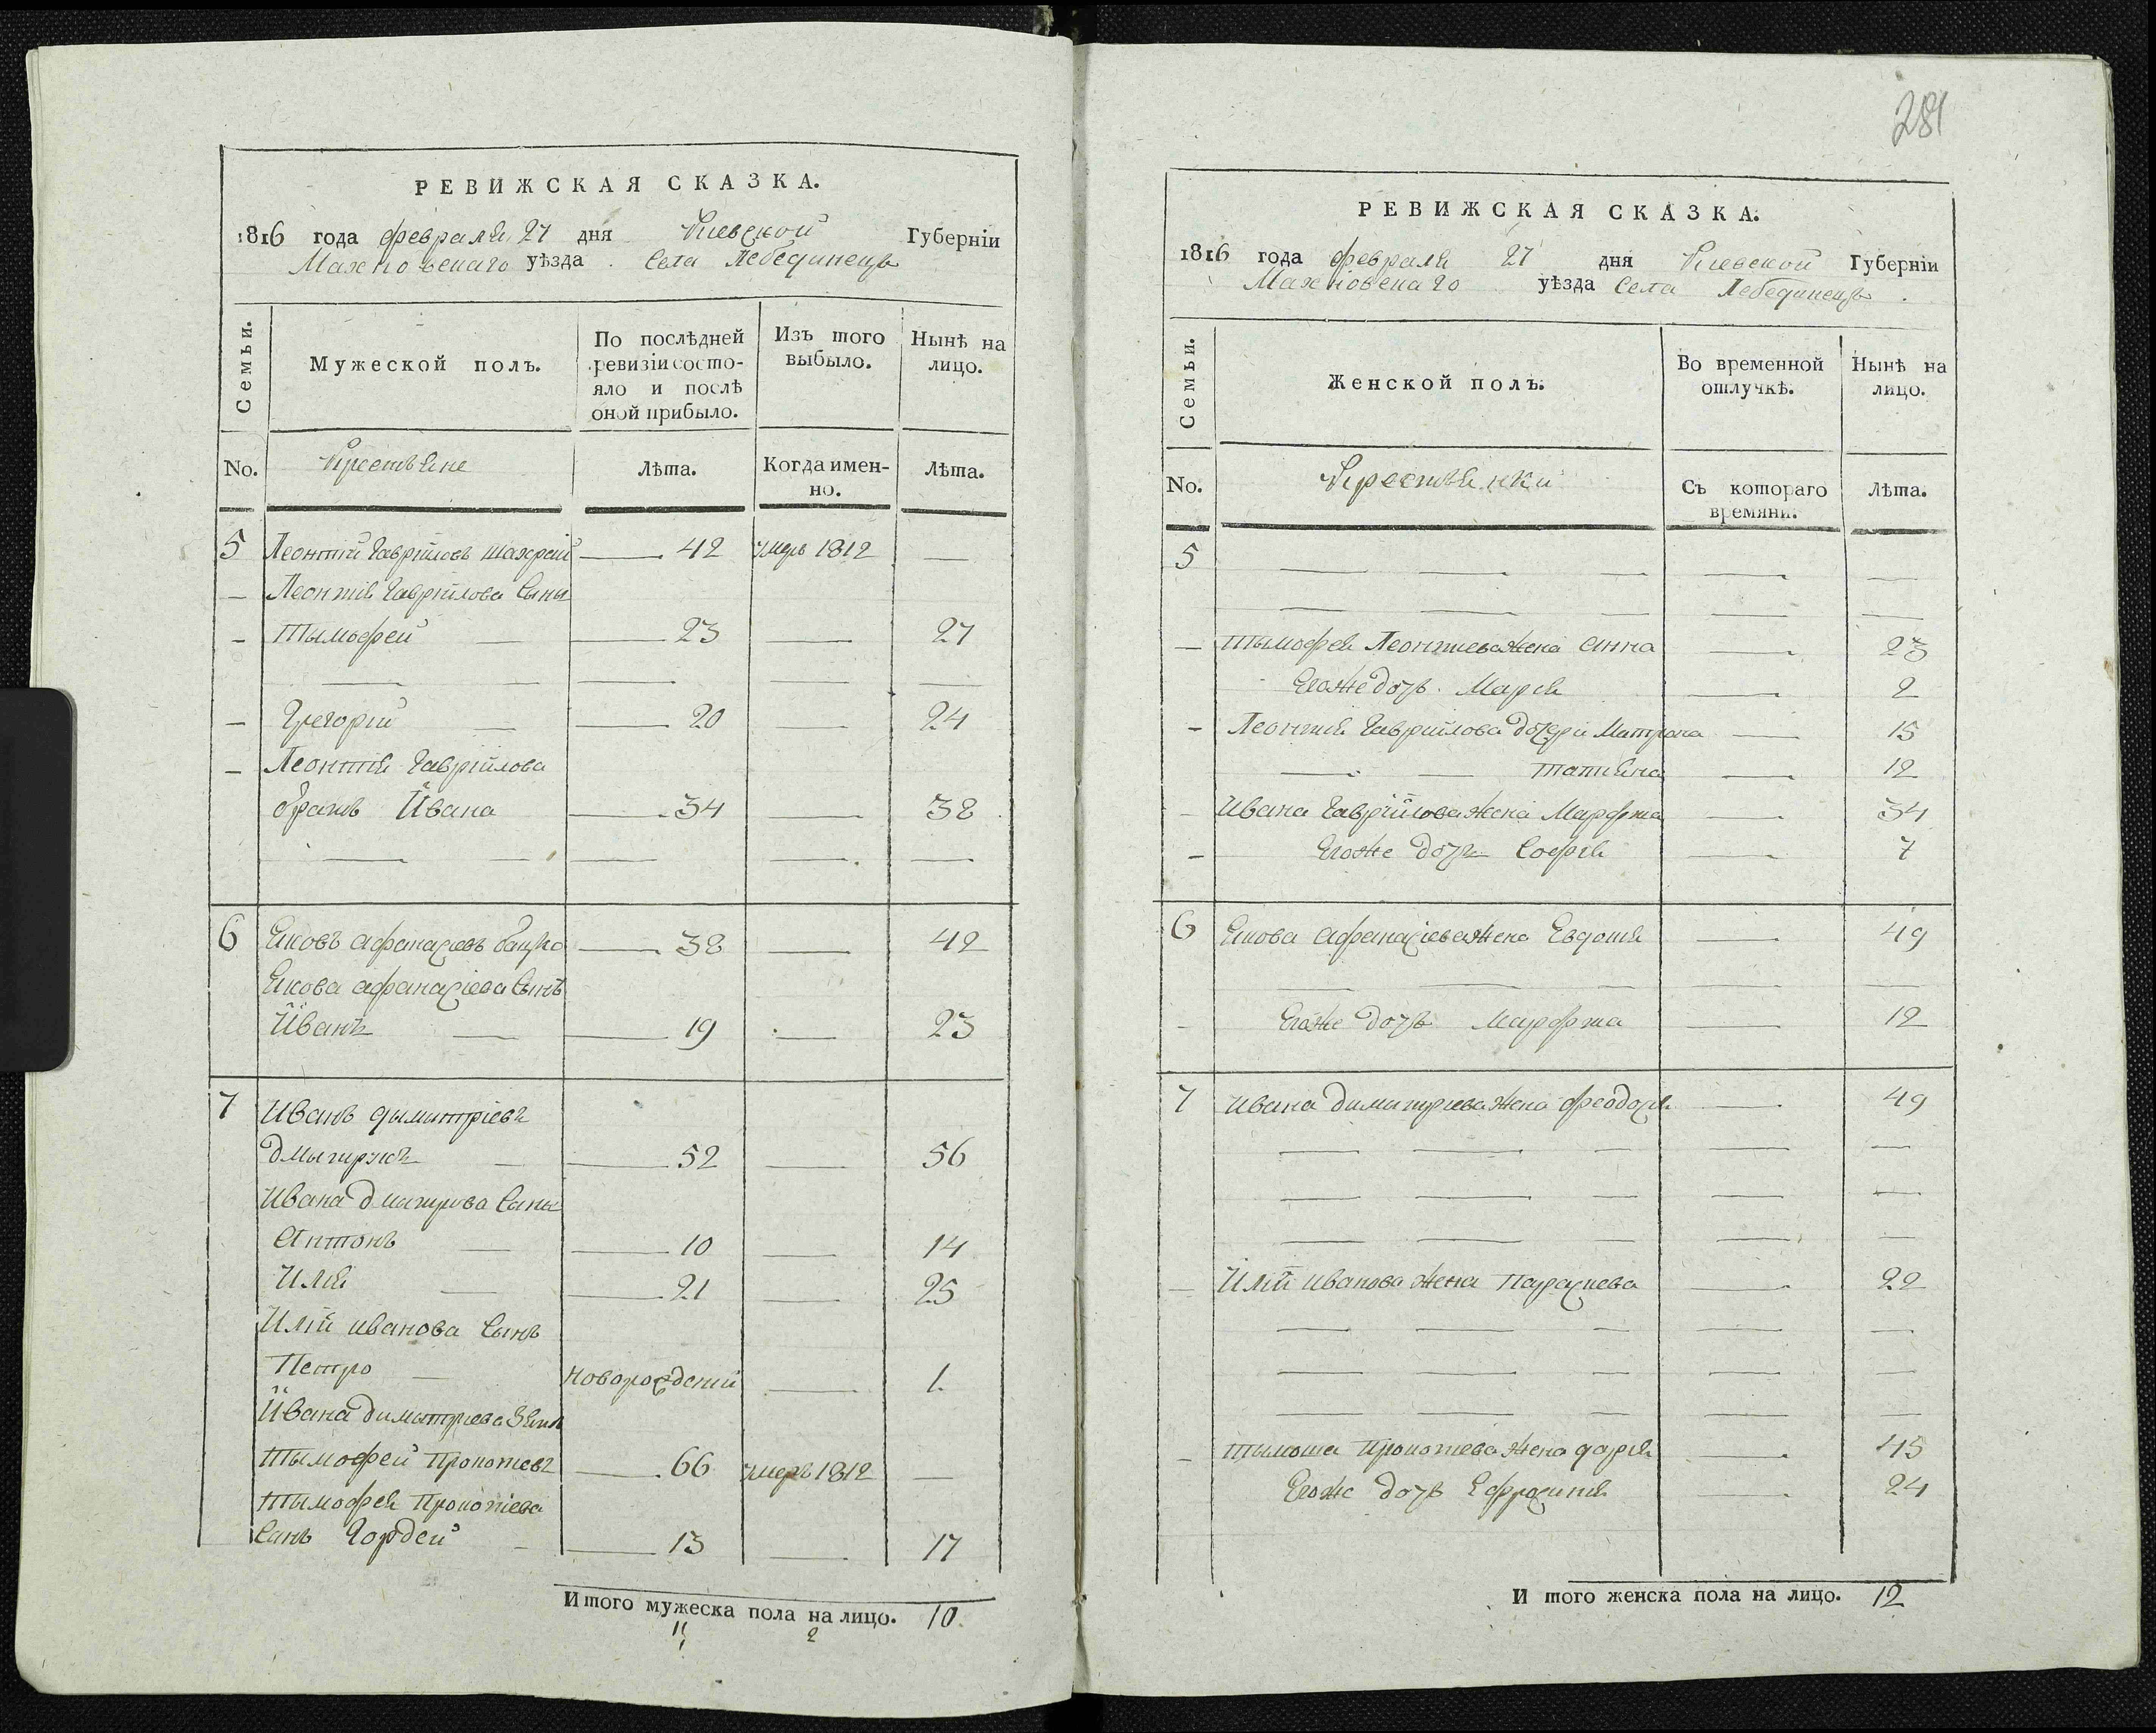 РЕВИЖСКАЯ СКАЗКА.
1816 года февраля 27 дня Киевской Губернїи
Махновскаго уѣзда Села Лебединецъ
Семьи.
Мужеской полъ.
По послѣдней ревизїи состо-
яло и послѣ
оной прибыло.
Изъ того
выбыло.
Нынѣ на
лицо.
No.
Крестьяне
Лѣта.
Когда имен-
но.
Лѣта.
5 Леонтій Гаврійловъ 42 умеръ 1812 —
— Леонтія Гаврійлова Сыны
— Тымофей — 23 — 27
— Григорій — 20 — 24
— Леонтія Гаврійлова
братъ Йвана — 34 — 38
6 Яковъ Афанасіевъ — 38 — 42
Якова Афанасіева Сынъ
Йванъ — 19 — 23
7 Иванъ Дымитріевъ
Дмытрукъ — 52 — 56
Ивана Дмитрова Сыны
Антонъ — 10 — 14
Илія — 21 — 25
Илій иванова Сынъ
Петро — новорожденій — 1.
Йвана Димытріева Зять
Тымофей Прокопіевъ — 66 умеръ 1812 —
Тымофея Прокопіева
Сынъ Гордей — 13 — 17
И того мужеска пола на лицо. 10.
11 2
281
РЕВИЖСКАЯ СКАЗКА.
1816 года февраля 27 дня Киевской Губернїи
Махновскаго уѣзда Села Лебединецъ.
Семьи.
Женской полъ.
Во временной
отлучкѣ.
Нынѣ на
лицо.
No.
Крестьянки
Съ котораго
времяни.
Лѣта.
5
— Тымофея Леонтіева жена Анна — 23
Егоже дочь Марія — 2
— Леонтія Гаврійлова дочери Матрона — 15
Татіяна — 12
— Ивана Гаврійлова жена Марфта — 34
— Егоже дочь Софія — 7
6 Якова Афанасіева жена Евдокія — 49
— Егоже дочь Марфта — 12
7 Ивана Димитріева жена Феодосія — 49
— Илій иванова жена Параскева — 22
— Прокопіева жена Дарія — 45
Егоже дочь Ефросинія — 24
И того женска пола на лицо. 12